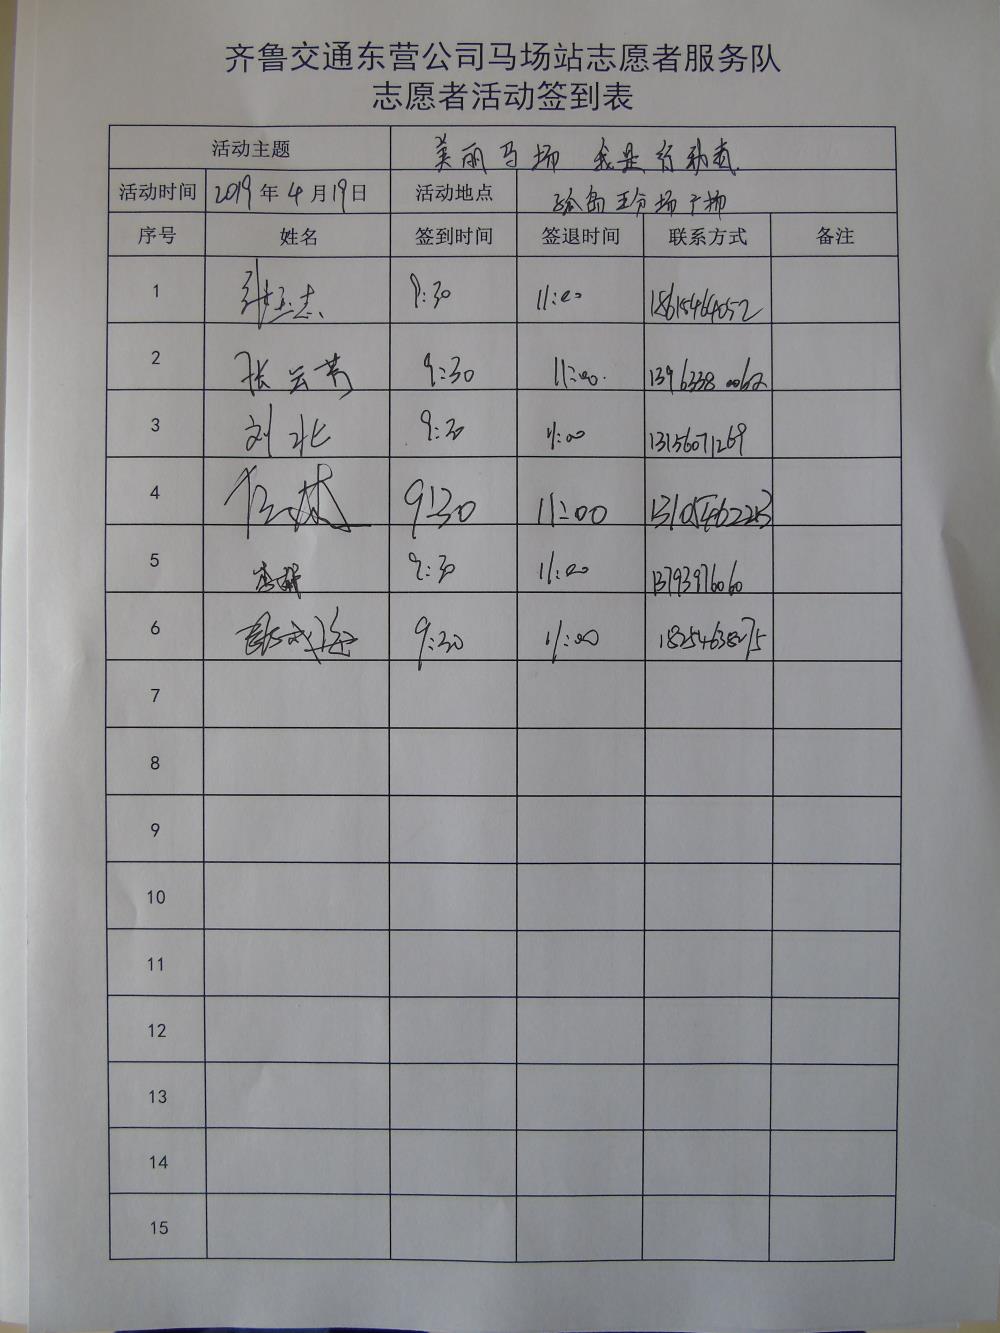 齐鲁交通东营公司马场站志愿者服务队
志愿者活动签到表
活动主题 美丽马场 我是行动者
活动时间 2019年4月19日 活动地点 场广场
序号 姓名 签到时间 签退时间 联系方式 备注
1 9:30 11:00 18615464052
2 张云芳 9:30 11:00 1396338 0062
3 刘北 9:30 11:00 13156071269
4 9:30 11:00 13105462223
5 9:30 11:00 13793976060
6 9:30 11:00 18254638275
7
8
9
10
11
12
13
14
15